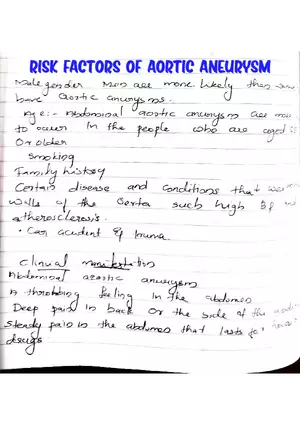 RISK FACTORS OF AORTIC ANEURYSM
Male gender Men are more likely than
have aortic aneurysms.
Age:- Abdominal aortic aneurysm are
to occur in the people who are aged
Or older
Smoking
Family history
Certain disease and conditions that
walls of the aorta such high BP
atherosclerosis.
• Car accident & trauma
Clinical manifestation
Abdominal aortic aneurysm
A throbbing feeling in the abdomen
Deep pain in back or the side of the
steady pain in the abdomen that lasts for hours
days